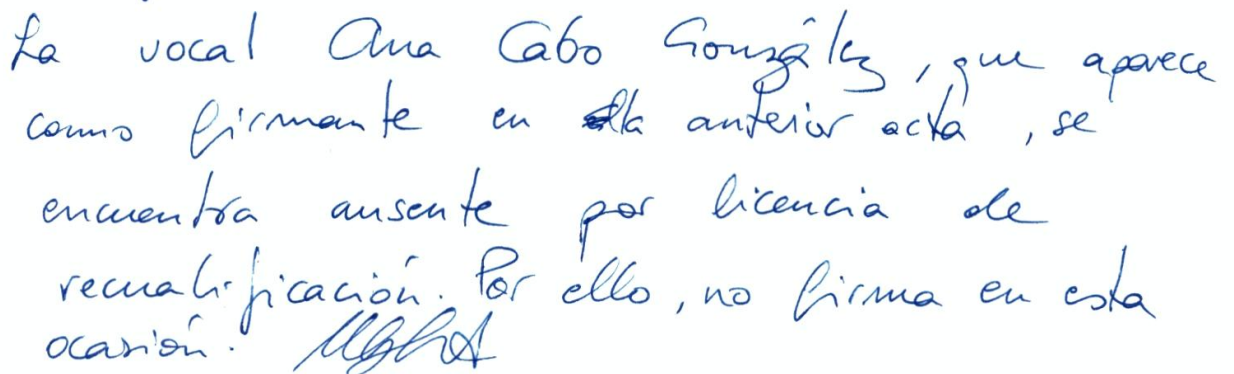 La vocal Ana Cabo González, que aparece
como firmante en la anterior acta, se
encuentra ausente por licencia de
recualificación. Por ello, no firma en esta
ocasión.